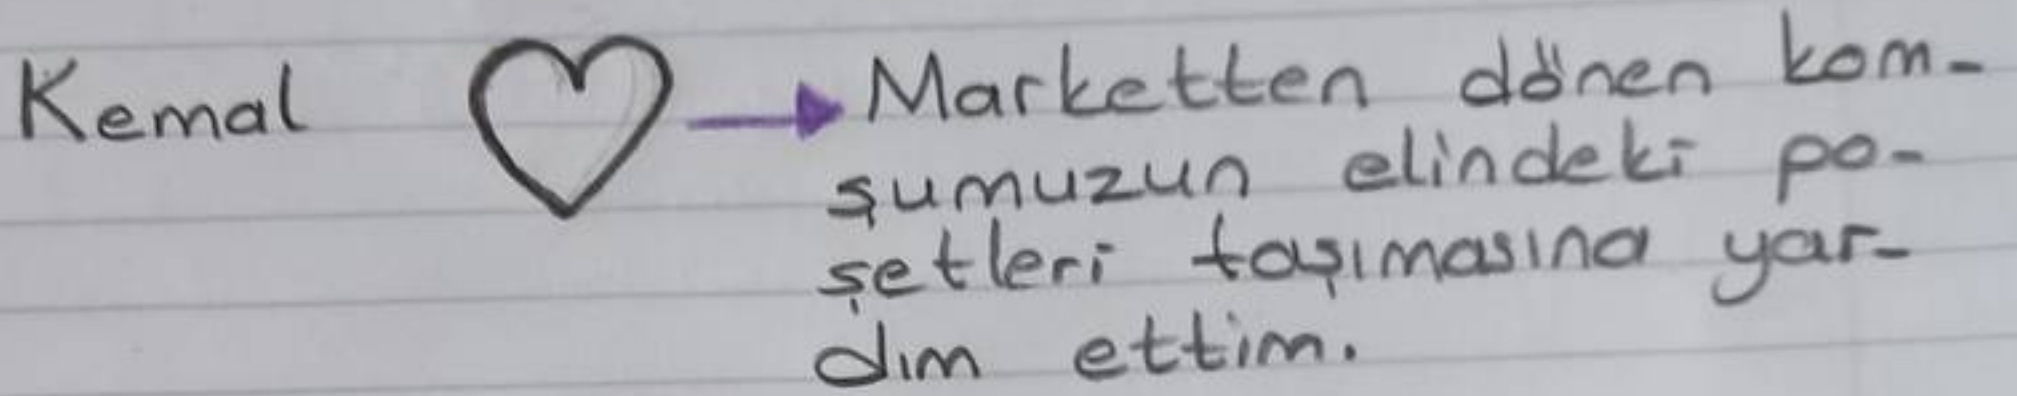 Kemal ♡ → Marketten dönen kom-
şumuzun elindeki po-
şetleri taşımasına yar-
dım ettim.